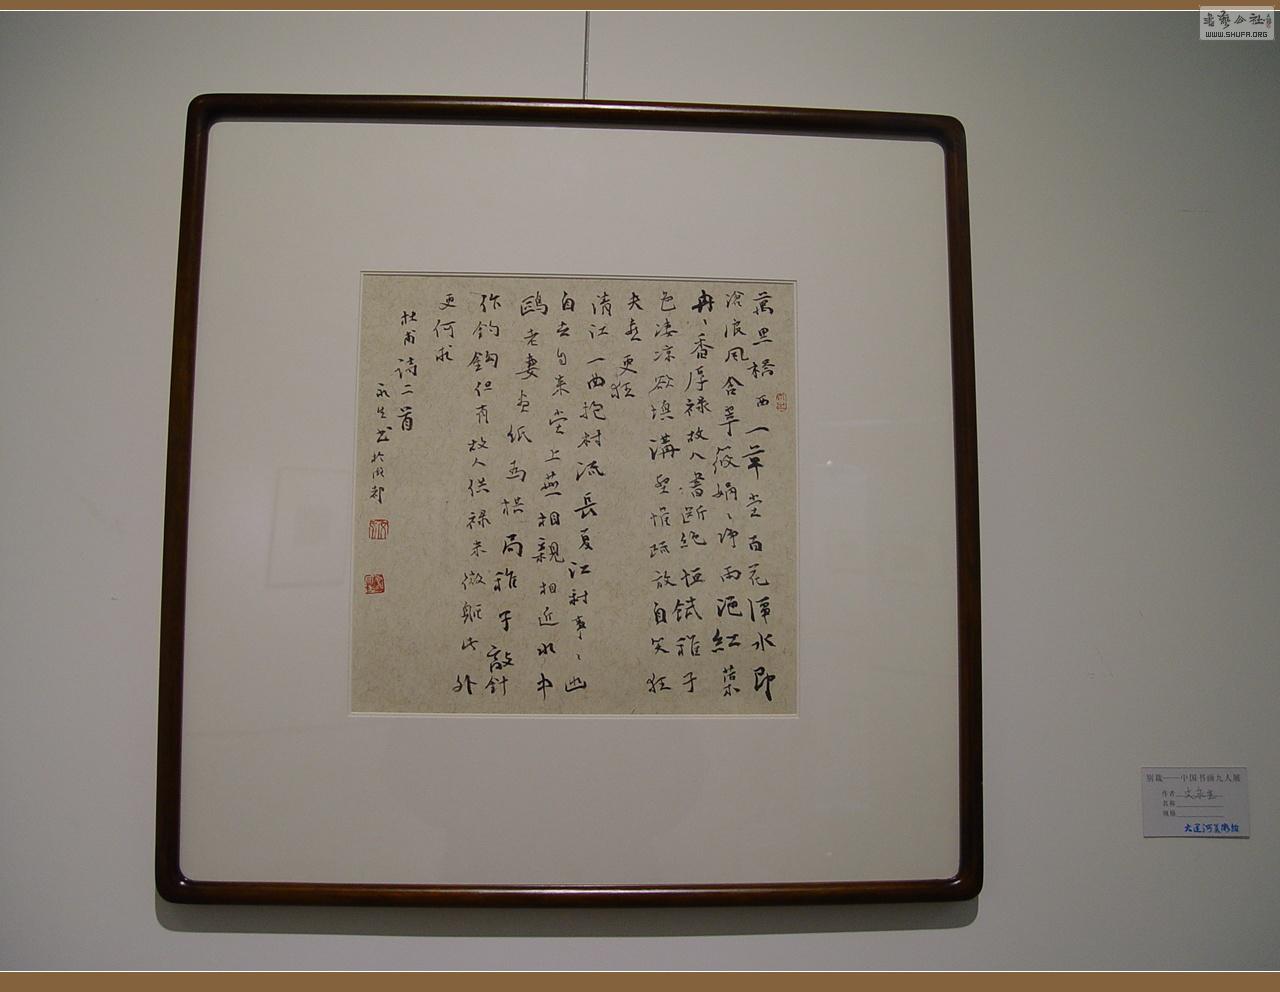 萬里橋西一草堂百花潭水即
滄浪風含翠筱娟〻净雨浥紅蕖
冉〻香厚禄故人書斷絕恒飢稚子
色凄凉欲填溝壑惟疏放自笑狂
夫老更狂
清江一曲抱村流長夏江村事〻幽
自去自来堂上燕相親相近水中
鷗老妻画纸為棋局稚子敲針
作釣鈎但有故人供禄米微軀此外
更何求
杜甫诗二首
永生书於成都
书艺公社
WWW.SHUFA.ORG
别裁——中国书画九人展
作者 文永生
名称
规格
大运河美术馆